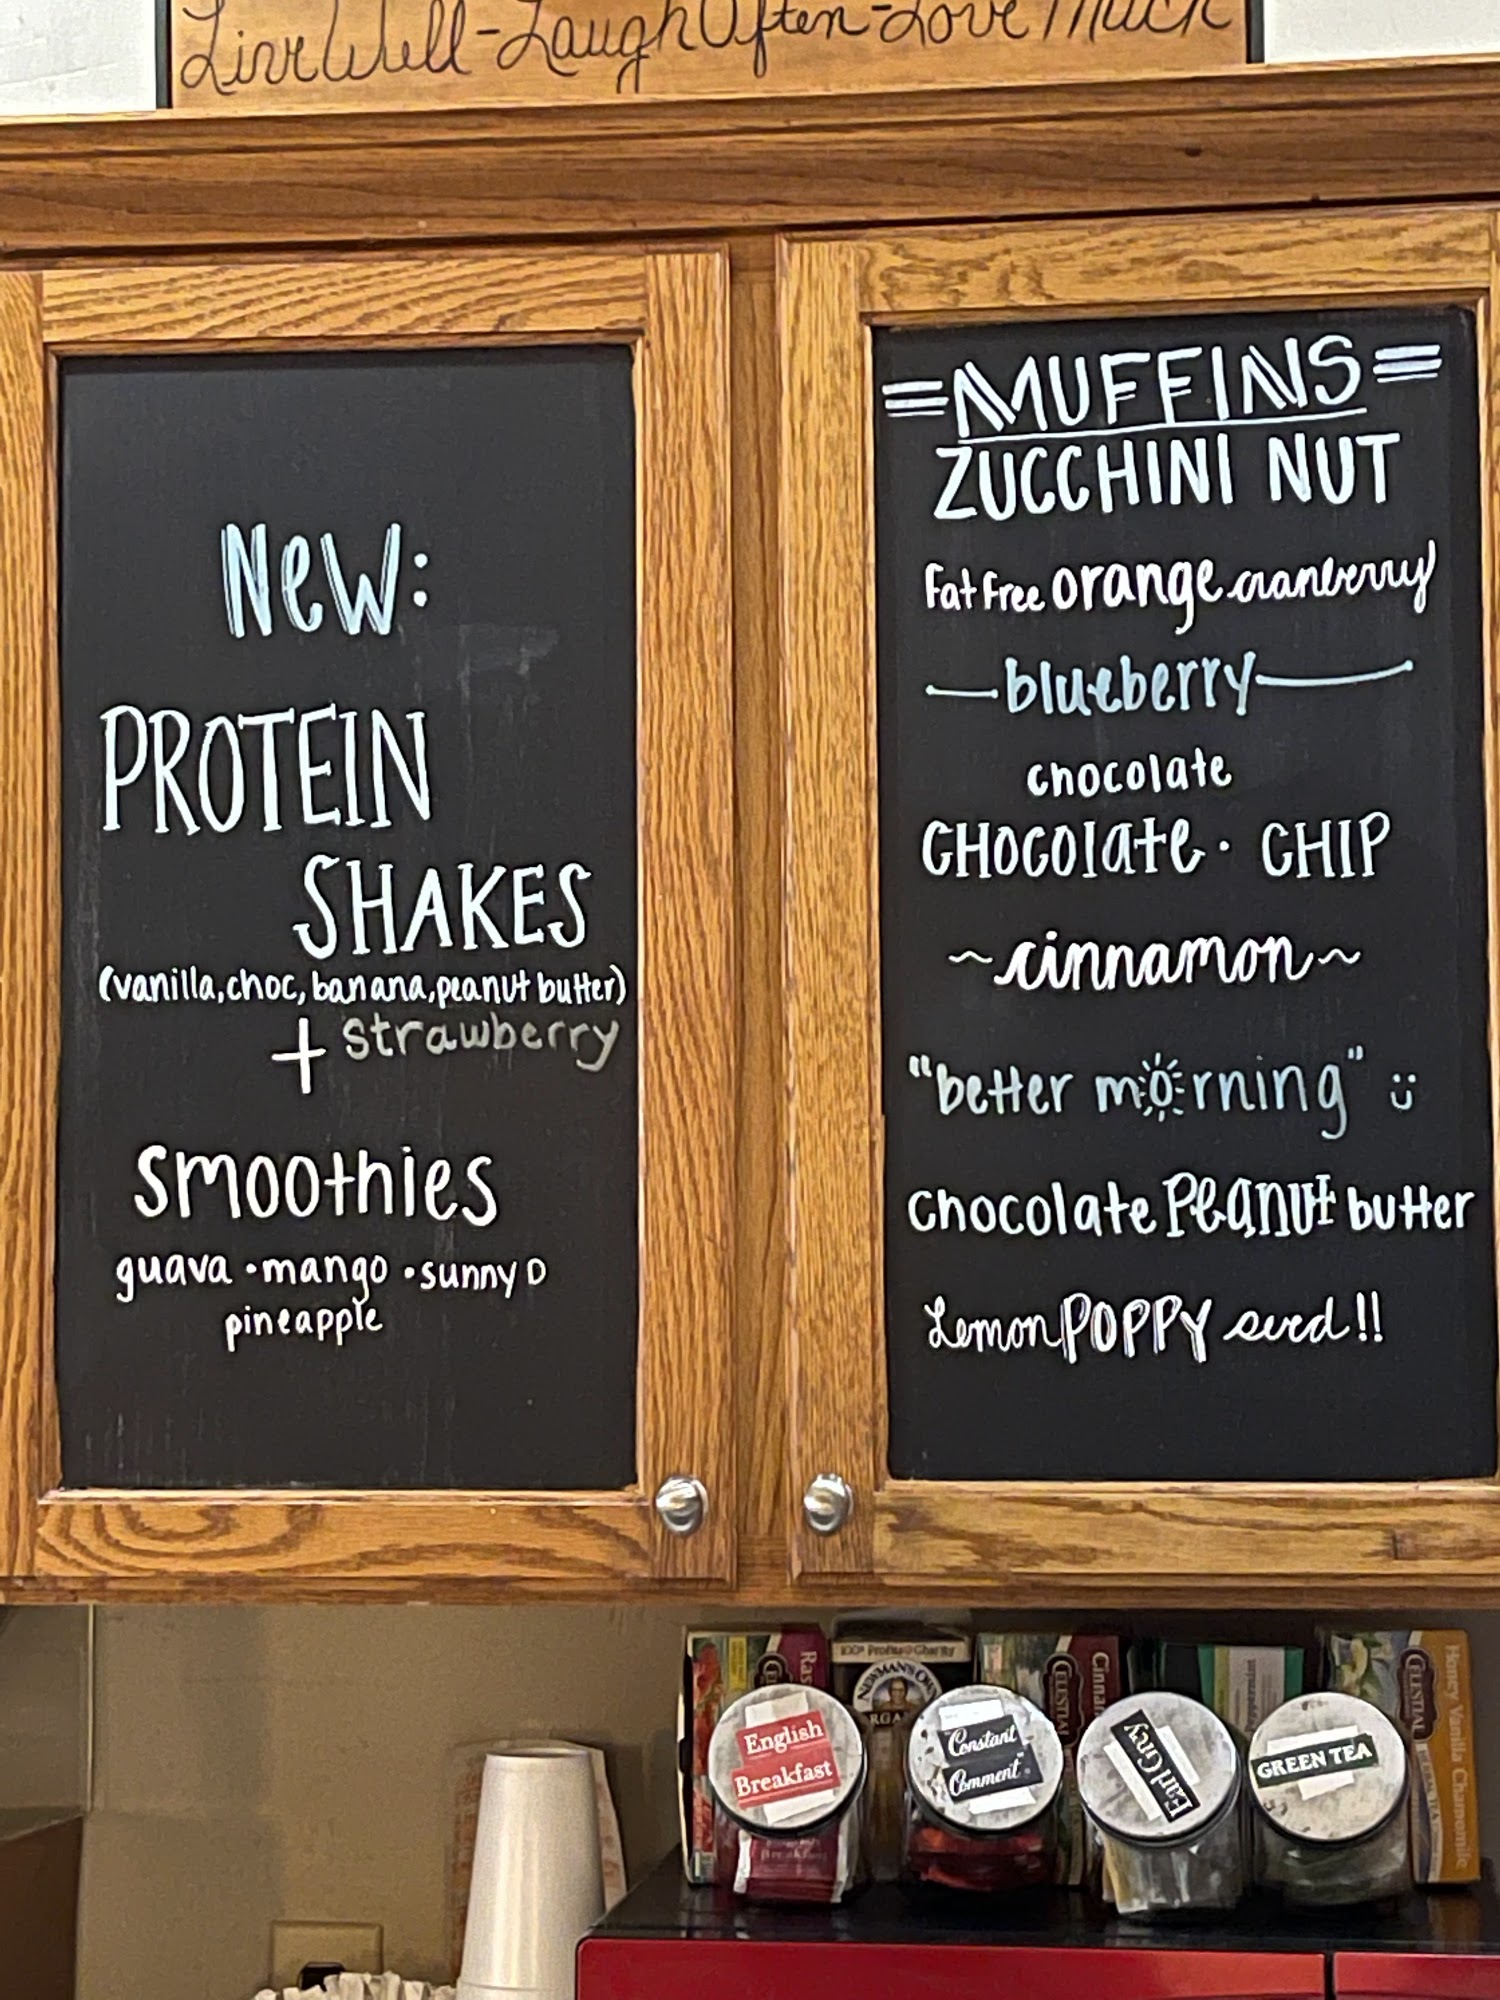 Live Well-Laugh Often-Love Much
New:
PROTEIN
SHAKES
(vanilla, choc, banana, peanut butter)
+ strawberry
smoothies
guava • mango • sunny D
pineapple
MUFFINS
ZUCCHINI NUT
Fat Free orange cranberry
blueberry
chocolate
CHocolate • CHIP
~cinnamon~
"better morning" :)
chocolate PEANUT butter
Lemon POPPY seed!!
100% Profits Charity
NEWMAN'S OWN
CELESTIAL
CELESTIAL
Honey Vanilla Chamomile
English
Breakfast
"Constant
Comment"
Earl Grey
GREEN TEA